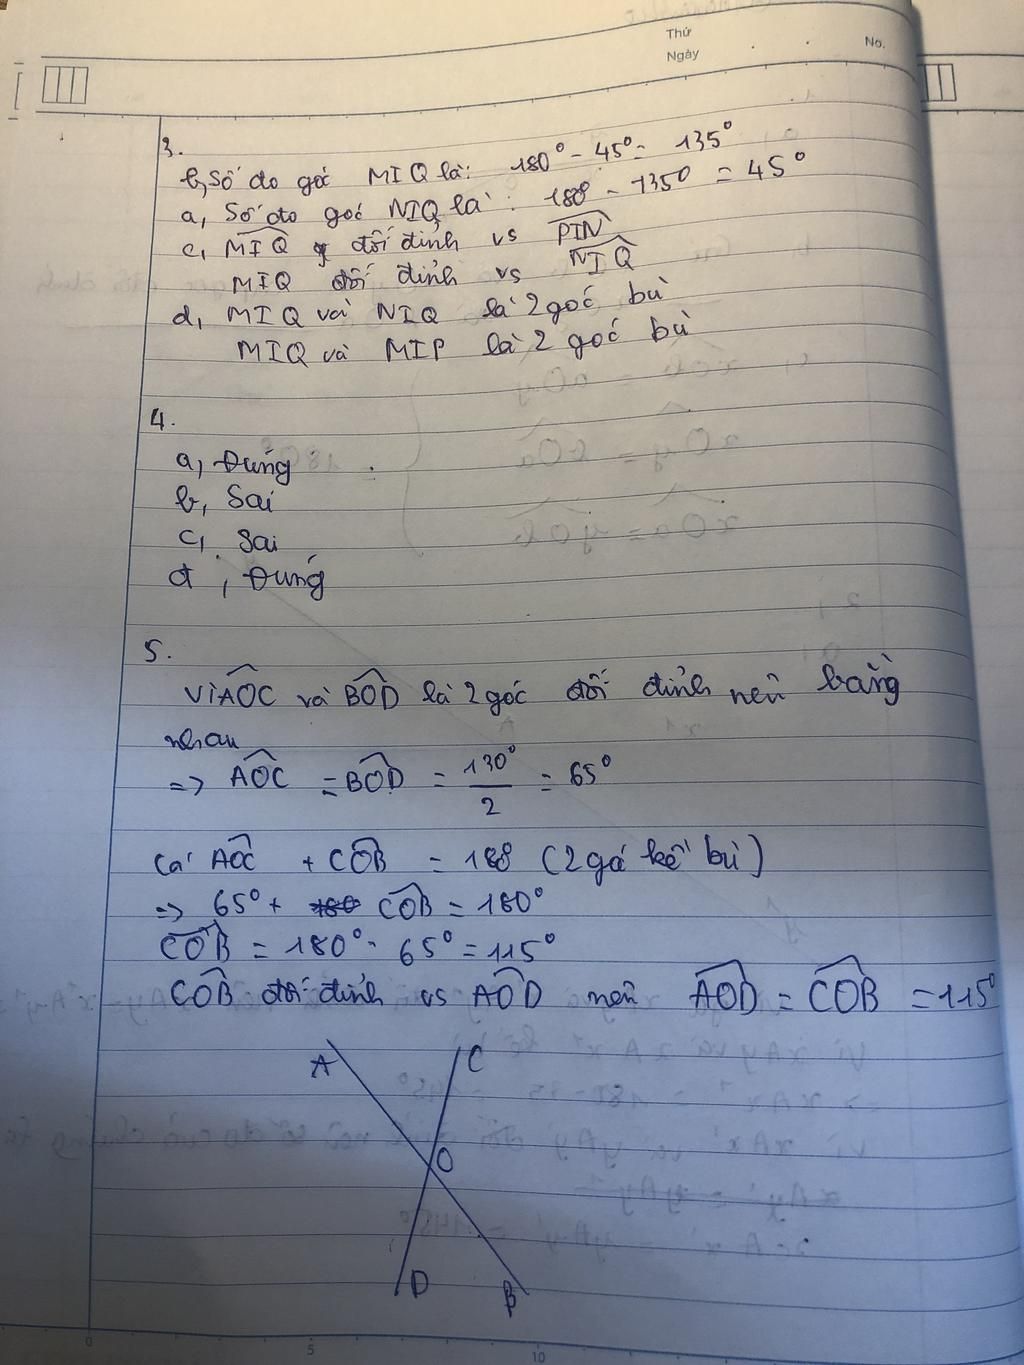 Thứ
Ngày
No.
3.
b, Số đo góc MIQ là: 180° - 45° = 135°
a, Số đo góc NIQ là: 180 - 135° = 45°
c, MIQ đối đỉnh vs PIN
MIQ đối đỉnh vs NIQ
d, MIQ và NIQ là 2 góc bù
MIQ và MIP là 2 góc bù
4.
a, Đúng
b, Sai
c, Sai
d, Đúng
5.
Vì AOC và BOD là 2 góc đối đỉnh nên bằng
nhau
=> AOC = BOD = 130°/2 = 65°
Có AOC + COB = 180 (2 gó kề bù)
=> 65° + COB = 180°
COB = 180° - 65° = 115°
COB đối đỉnh vs AOD nên AOD = COB = 115°
A C
O
D B
0 5 10